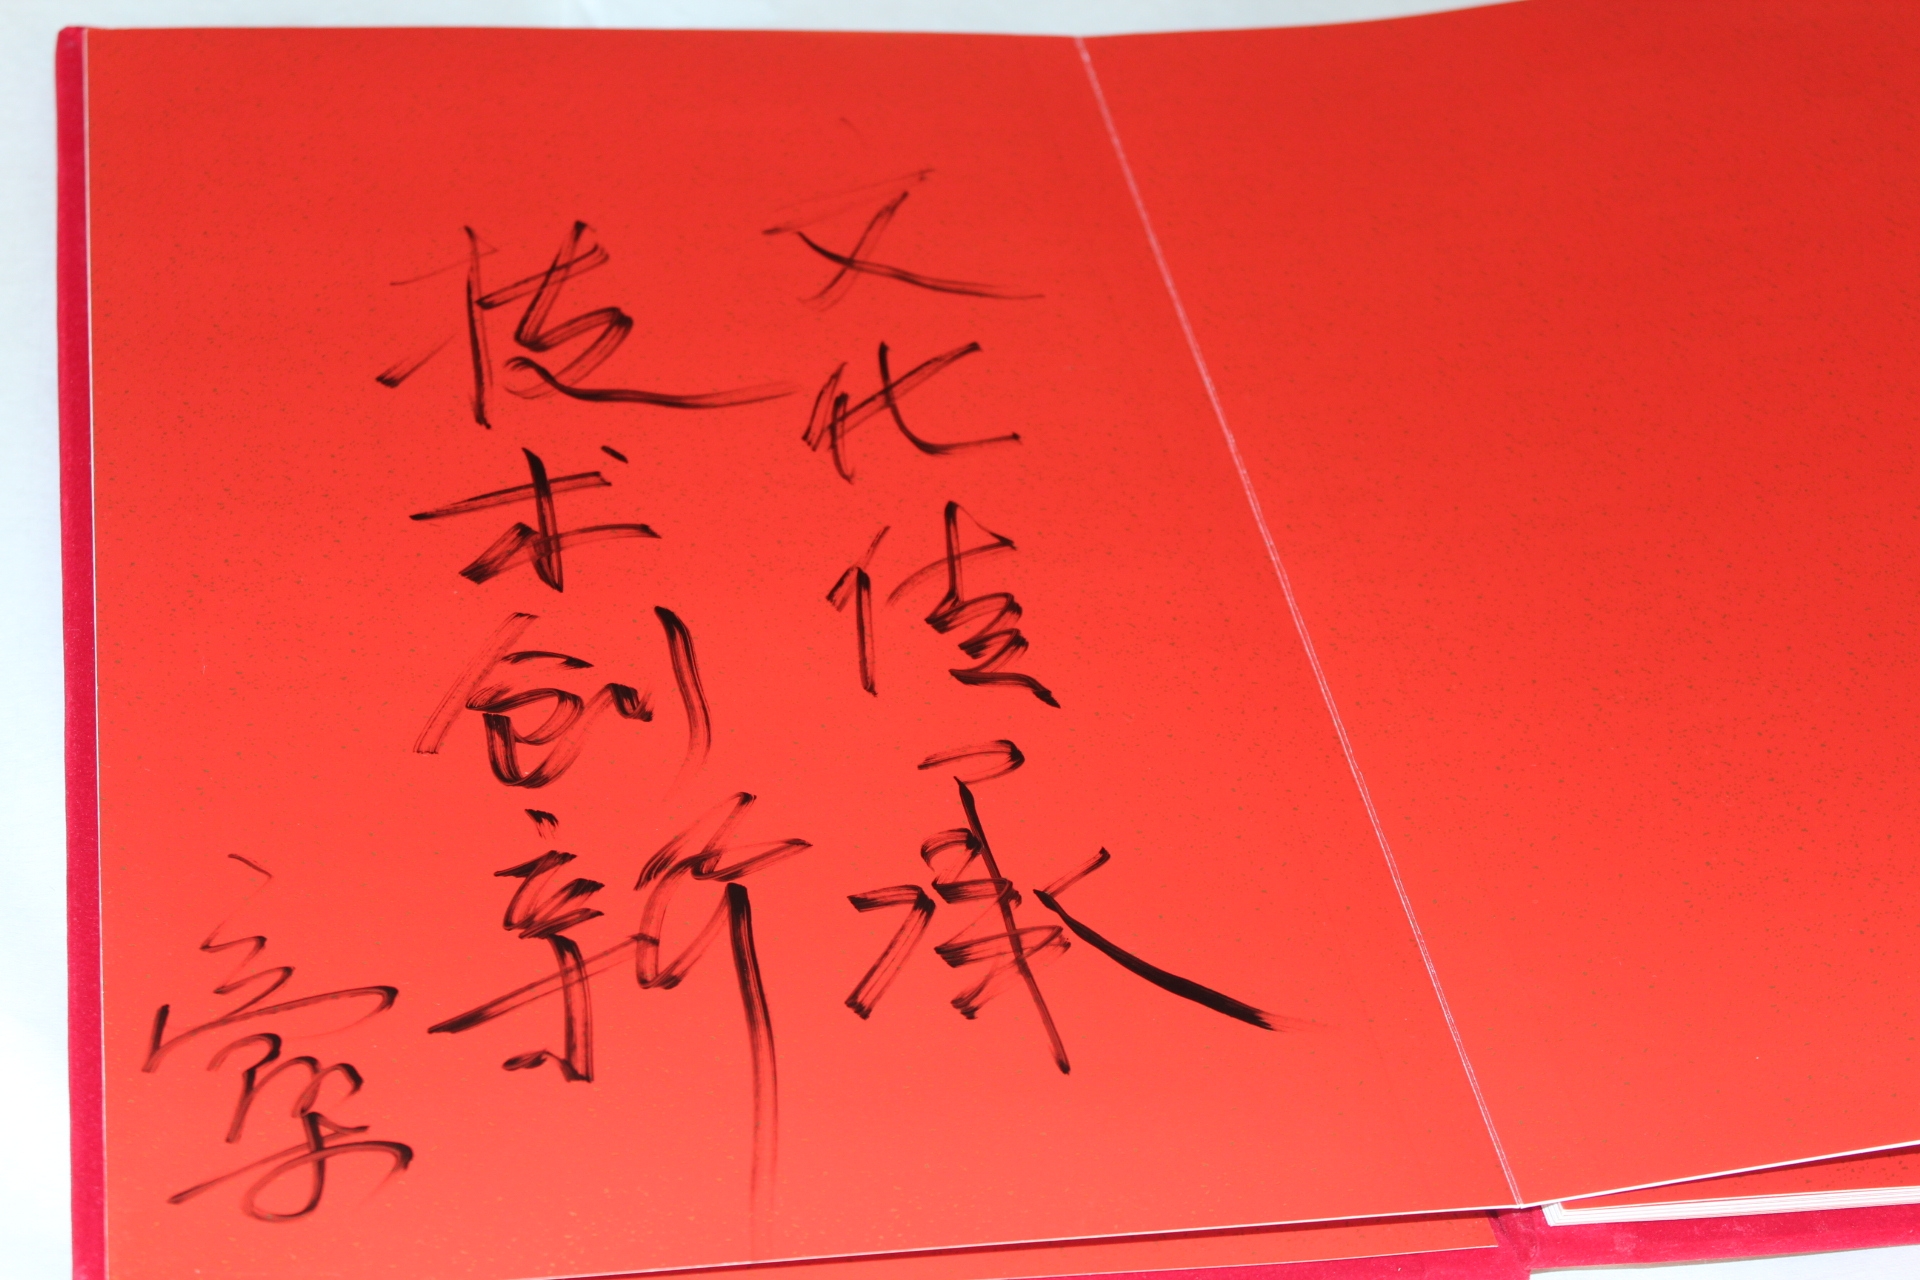 文化传承
技术创新